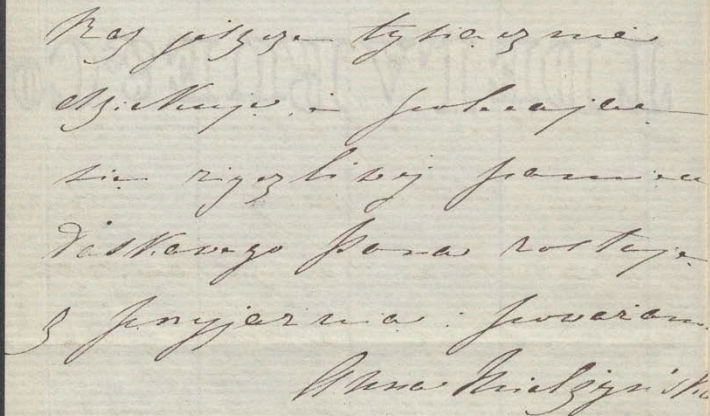 Raz jeszcze tysiącznie
dziękuję i polecając
się życzliwej pamięci
Łaskawego Pana zostaję
z przyjaźnią i poważan
Anna Mielżyńska